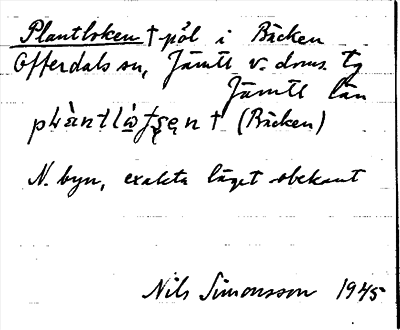 Plantloken † pöl i Bäcken
Offerdals sn, Jämtl v. doms. tg
Jämtl län
(Bäcken)
N. byn, exakta läget obekant
Nils Simonsson 1945